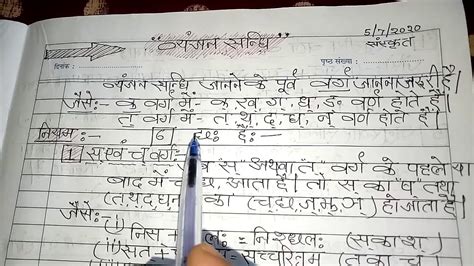 5/7/2020
व्यंजन सन्धि
संस्कृत
दिनांक :
पृष्ठ संख्या :
व्यंजन सन्धि जानने के पूर्व वर्ग जानना जरूरी है।
जैसे:- क वर्ग में- क, ख, ग, घ, ङ वर्ण होते हैं।
त् वर्ग में- त, थ्, द्, ध्, न् वर्ण होते हैं।
नियम:- 6 छः हैं:-
1 स् एवं च वर्ग:- स् अथवा त वर्ग के पहले या
बाद में आता है। तो स् का श् तथा
(त्, थ्, द्, ध्, न्) का (च्, छ्, ज्, झ्, ञ्) हो जाता है।
जैसे:-
(i) निस् + = निश्छलः (सकाश)
(ii) सत् + = सच्चरित्रम् (त का च)